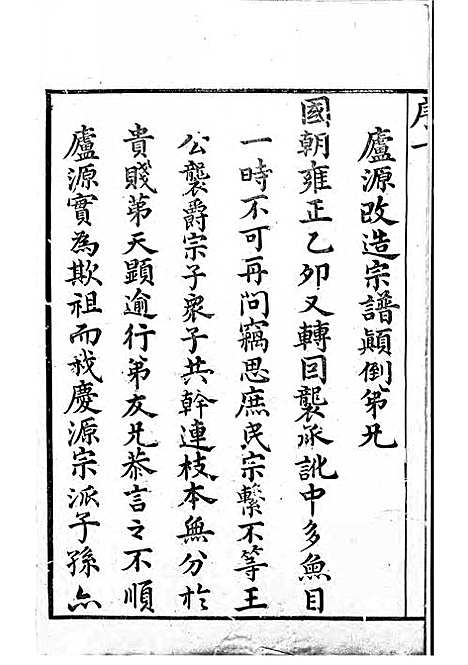 盧源改造宗譜顛倒弟兄
國朝雍正乙卯又轉回襲承訛中多魚目
一時不可再问竊思庶民宗繫不等王
公襲爵宗子衆子共幹連枝本無分於
貴賤苐天顯逾行第友兄恭言之不順
盧源實為欺祖而我慶源宗派子孫亦